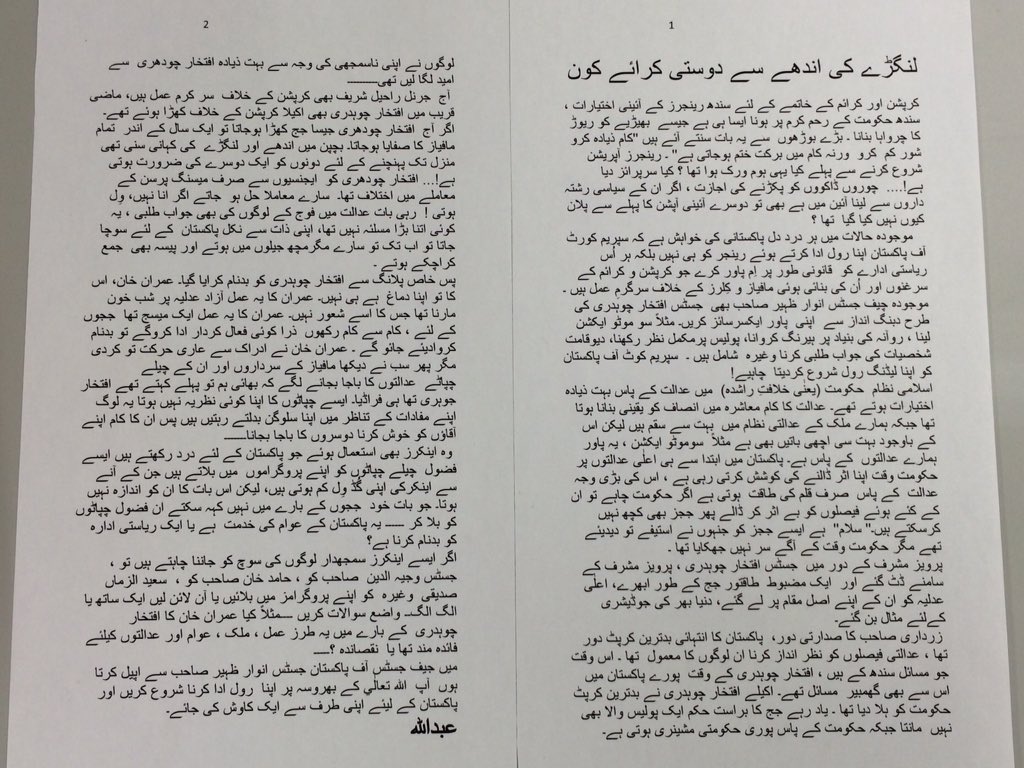 1
لنگڑے کی اندھے سے دوستی کرائے کون
کرپشن اور کرائم کے خاتمے کے لئے سندھ رینجرز کے آئینی اختیارات ،
سندھ حکومت کے رحم کرم پر ہونا ایسا ہی ہے جیسے بھیڑیے کو ریوڑ
کا چرواہا بنانا ۔ بڑے بوڑھوں سے یہ بات سنتے آئے ہیں "کام ذیادہ کرو
شور کم کرو ورنہ کام میں برکت ختم ہوجاتی ہے" ۔ رینجرز آپریشن
شروع کرنے سے پہلے کیا یہی ہوم ورک ہوا تھا ؟ کیا سرپرائز دیا
ہے!.... چوروں ڈاکووں کو پکڑنے کی اجازت ، اگر ان کے سیاسی رشتہ
داروں سے لینا آئین میں ہے بھی تو دوسرے آئینی آپشن کا پہلے سے پلان
کیوں نہیں کیا گیا تھا ؟
موجودہ حالات میں ہر درد دل پاکستانی کی خواہش ہے کہ سپریم کورٹ
آف پاکستان اپنا رول ادا کرتے ہوئے رینجر کو ہی نہیں بلکہ ہر اُس
ریاستی ادارے کو قانونی طور پر اِم پاور کرے جو کرپشن و کرائم کے
سرغنوں اور اُن کی بنائی ہوئی مافیاز و کلرز کے خلاف سرگرم عمل ہیں ۔
موجودہ چیف جسٹس انوار ظہیر صاحب بھی جسٹس افتخار چوہدری کی
طرح دبنگ انداز سے اپنی پاور ایکسرسائز کریں۔ مثلاً سو موٹو ایکشن
لینا ، روآنہ کی بنیاد پر ہیرنگ کروانا، پولیس پرمکمل نظر رکھنا، دیوقامت
شخصیات کی جواب طلبی کرنا وغیرہ شامل ہیں ۔ سپریم کوٹ آف پاکستان
کو اپنا لیڈنگ رول شروع کردینا چاہیے!
اسلامی نظام حکومت (یعنی خلافتِ راشدہ) میں عدالت کے پاس بہت ذیادہ
اختیارات ہوتے تھے۔ عدالت کا کام معاشرہ میں انصاف کو یقینی بنانا ہوتا
تھا جبکہ ہمارے ملک کے عدالتی نظام میں بہت سے سقم ہیں لیکن اس
کے باوجود بہت سی اچھی باتیں بھی ہے مثلاً سوموٹو ایکشن ، یہ پاور
ہمارے عدالتوں کے پاس ہے۔ پاکستان میں ابتدا سے ہی اعلٰی عدالتوں پر
حکومت وقت اپنا اثر ڈالنے کی کوشش کرتی رہی ہے ، اس کی بڑی وجہ
عدالت کے پاس صرف قلم کی طاقت ہوتی ہے اگر حکومت چاہے تو ان
کے کئے ہوئے فیصلوں کو بے اثر کر ڈالے پھر ججز بھی کچھ نہیں
کرسکتے ہیں۔" سلام" ہے ایسے ججز کو جنہوں نے استیفے تو دیدیئے
تھے مگر حکومت وقت کے آگے سر نہیں جھکایا تھا ۔
پرویز مشرف کے دور میں جسٹس افتخار چوہدری ، پرویز مشرف کے
سامنے ڈٹ گئے اور ایک مضبوط طاقتور جج کے طور ابھرے، اعلٰی
عدلیہ کو ان کے اپنے اصل مقام پر لے گئے، دنیا بھر کی جوڈیشری
کےلئے مثال بن گئے۔
زرداری صاحب کا صدارتی دور، پاکستان کا انتہائی بدترین کرپٹ دور
تھا ، عدالتی فیصلوں کو نظر انداز کرنا ان لوگوں کا معمول تھا ۔ اس وقت
جو مسائل سندھ کے ہیں ، افتخار چوہدری کے وقت پورے پاکستان میں
اس سے بھی گھمبیر مسائل تھے۔ اکیلے افتخار چوہدری نے بدترین کرپٹ
حکومت کو ہلا دیا تھا ۔ یاد رہے جج کا براست حکم ایک پولیس والا بھی
نہیں مانتا جبکہ حکومت کے پاس پوری حکومتی مشینری ہوتی ہے۔
2
لوگوں نے اپنی ناسمجھی کی وجہ سے بہت ذیادہ افتخار چودھری سے
امید لگا لیں تھی۔۔۔۔۔۔
آج جرنل راحیل شریف بھی کرپشن کے خلاف سر گرم عمل ہیں، ماضی
قریب میں افتخار چوہدری بھی اکیلا کرپشن کے خلاف کھڑا ہوئے تھے۔
اگر آج افتخار چودھری جیسا جج کھڑا ہوجاتا تو ایک سال کے اندر تمام
مافیاز کا صفایا ہوجاتا۔ بچپن میں اندھے اور لنگڑے کی کہانی سنی تھی
منزل تک پہنچنے کے لئے دونوں کو ایک دوسرے کی ضرورت ہوتی
ہے!... افتخار چودھری کو ایجنسیوں سے صرف میسنگ پرسن کے
معاملے میں اختلاف تھا۔ سارے معاملا حل ہو جاتے اگر انا نہیں، وِل
ہوتی ! رہی بات عدالت میں فوج کے لوگوں کی بھی جواب طلبی ، یہ
کوئی اتنا بڑا مسلئہ نہیں تھا، اپنی ذات سے نکل پاکستان کے لئے سوچا
جاتا تو اب تک تو سارے مگرمچھ جیلوں میں ہوتے اور پیسہ بھی جمع
کراچکے ہوتے ۔
پس خاص پلانگ سے افتخار چوہدری کو بدنام کرایا گیا۔ عمران خان، اس
کا تو اپنا دماغ ہے ہی نہیں۔ عمران کا یہ عمل آزاد عدلیہ پر شب خون
مارنا تھا جس کا اسے شعور نہیں۔ عمران کا یہ عمل ایک میسج تھا ججوں
کے لئے ، کام سے کام رکھوں ذرا کوئی فعال کردار ادا کروگے تو بدنام
کروادیئے جائو گے ۔ عمران خان نے ادراک سے عاری حرکت تو کردی
مگر پھر سب نے دیکھا مافیاز کے سرداروں اور ان کے چیلے
چپاٹے عدالتوں کا باجا بجانے لگے کہ بھائی ہم تو پہلے کہتے تھے افتخار
چوہری تھا ہی فراڈیا۔ ایسے چپاٹوں کا اپنا کوئی نظریہ نہیں ہوتا یہ لوگ
اپنے مفادات کے تناظر میں اپنا سلوگن بدلتے رہتیں ہیں پس ان کا کام اپنے
آقاؤں کو خوش کرنا دوسروں کا باجا بجانا۔۔۔۔۔
وہ اینکرز بھی استعمال ہوئے جو پاکستان کے لئے درد رکھتے ہیں ایسے
فضول چیلے چپاٹوں کو اپنے پروگراموں میں بلاتے ہیں جن کے آنے
سے اینکرکی اپنی گُڈ وِل کم ہوتی ہیں، لیکن اس بات کا ان کو اندازہ نہیں
ہوتا۔ جو بات خود ججوں کے بارے میں نہیں کہہ سکتے ان فضول چپاٹوں
کو بلا کر ۔۔۔۔۔ یہ پاکستان کے عوام کی خدمت ہے یا ایک ریاستی ادارہ
کو بدنام کرنا ہے؟
اگر ایسے اینکرز سمجھدار لوگوں کی سوچ کو جاننا چاہتے ہیں تو ،
جسٹس وجیہ الدین صاحب کو ، حامد خان صاحب کو ، سعید الزماں
صدیقی وغیرہ کو اپنے پروگرامز میں بلائیں یا آن لائن لیں ایک ساتھ یا
الگ الگ۔ واضع سوالات کریں ۔۔۔۔مثلاً کیا عمران خان کا افتخار
چوہدری کے بارے میں یہ طرز عمل ، ملک ، عوام اور عدالتوں کیلئے
فائدہ مند تھا یا نقصاندہ ؟۔۔۔۔
میں چیف جسٹس آف پاکستان جسٹس انوار ظہیر صاحب سے اپیل کرتا
ہوں آپ اللہ تعالٰی کے بھروسہ پر اپنا رول ادا کرنا شروع کریں اور
پاکستان کے لیئے اپنی طرف سے ایک کاوش کی جائے۔
عبداللہ